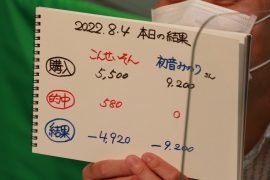 2022.8.4 本日の結果
こんせいそん 初音みのり さん
購入 5,500 9,200
的中 580 0
結果 -4,920 -9,200